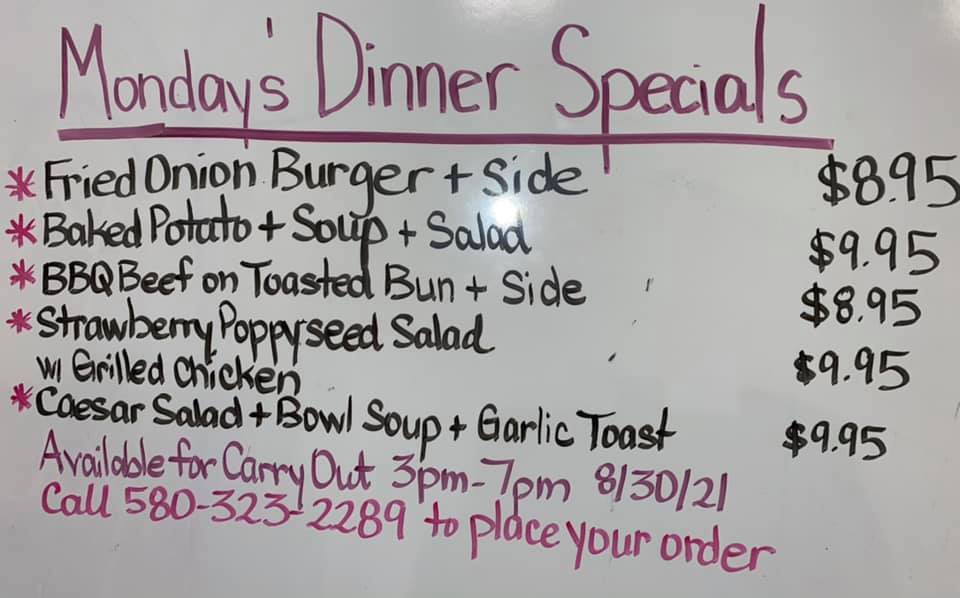 Monday's Dinner Specials
* Fried Onion Burger + Side $8.95
* Baked Potato + Soup + Salad $9.95
* BBQ Beef on Toasted Bun + Side $8.95
* Strawberry Poppyseed Salad
w/ Grilled Chicken $9.95
* Caesar Salad + Bowl Soup + Garlic Toast $9.95
Available for Carry Out 3pm-7pm 8/30/21
Call 580-323-2289 to place your order